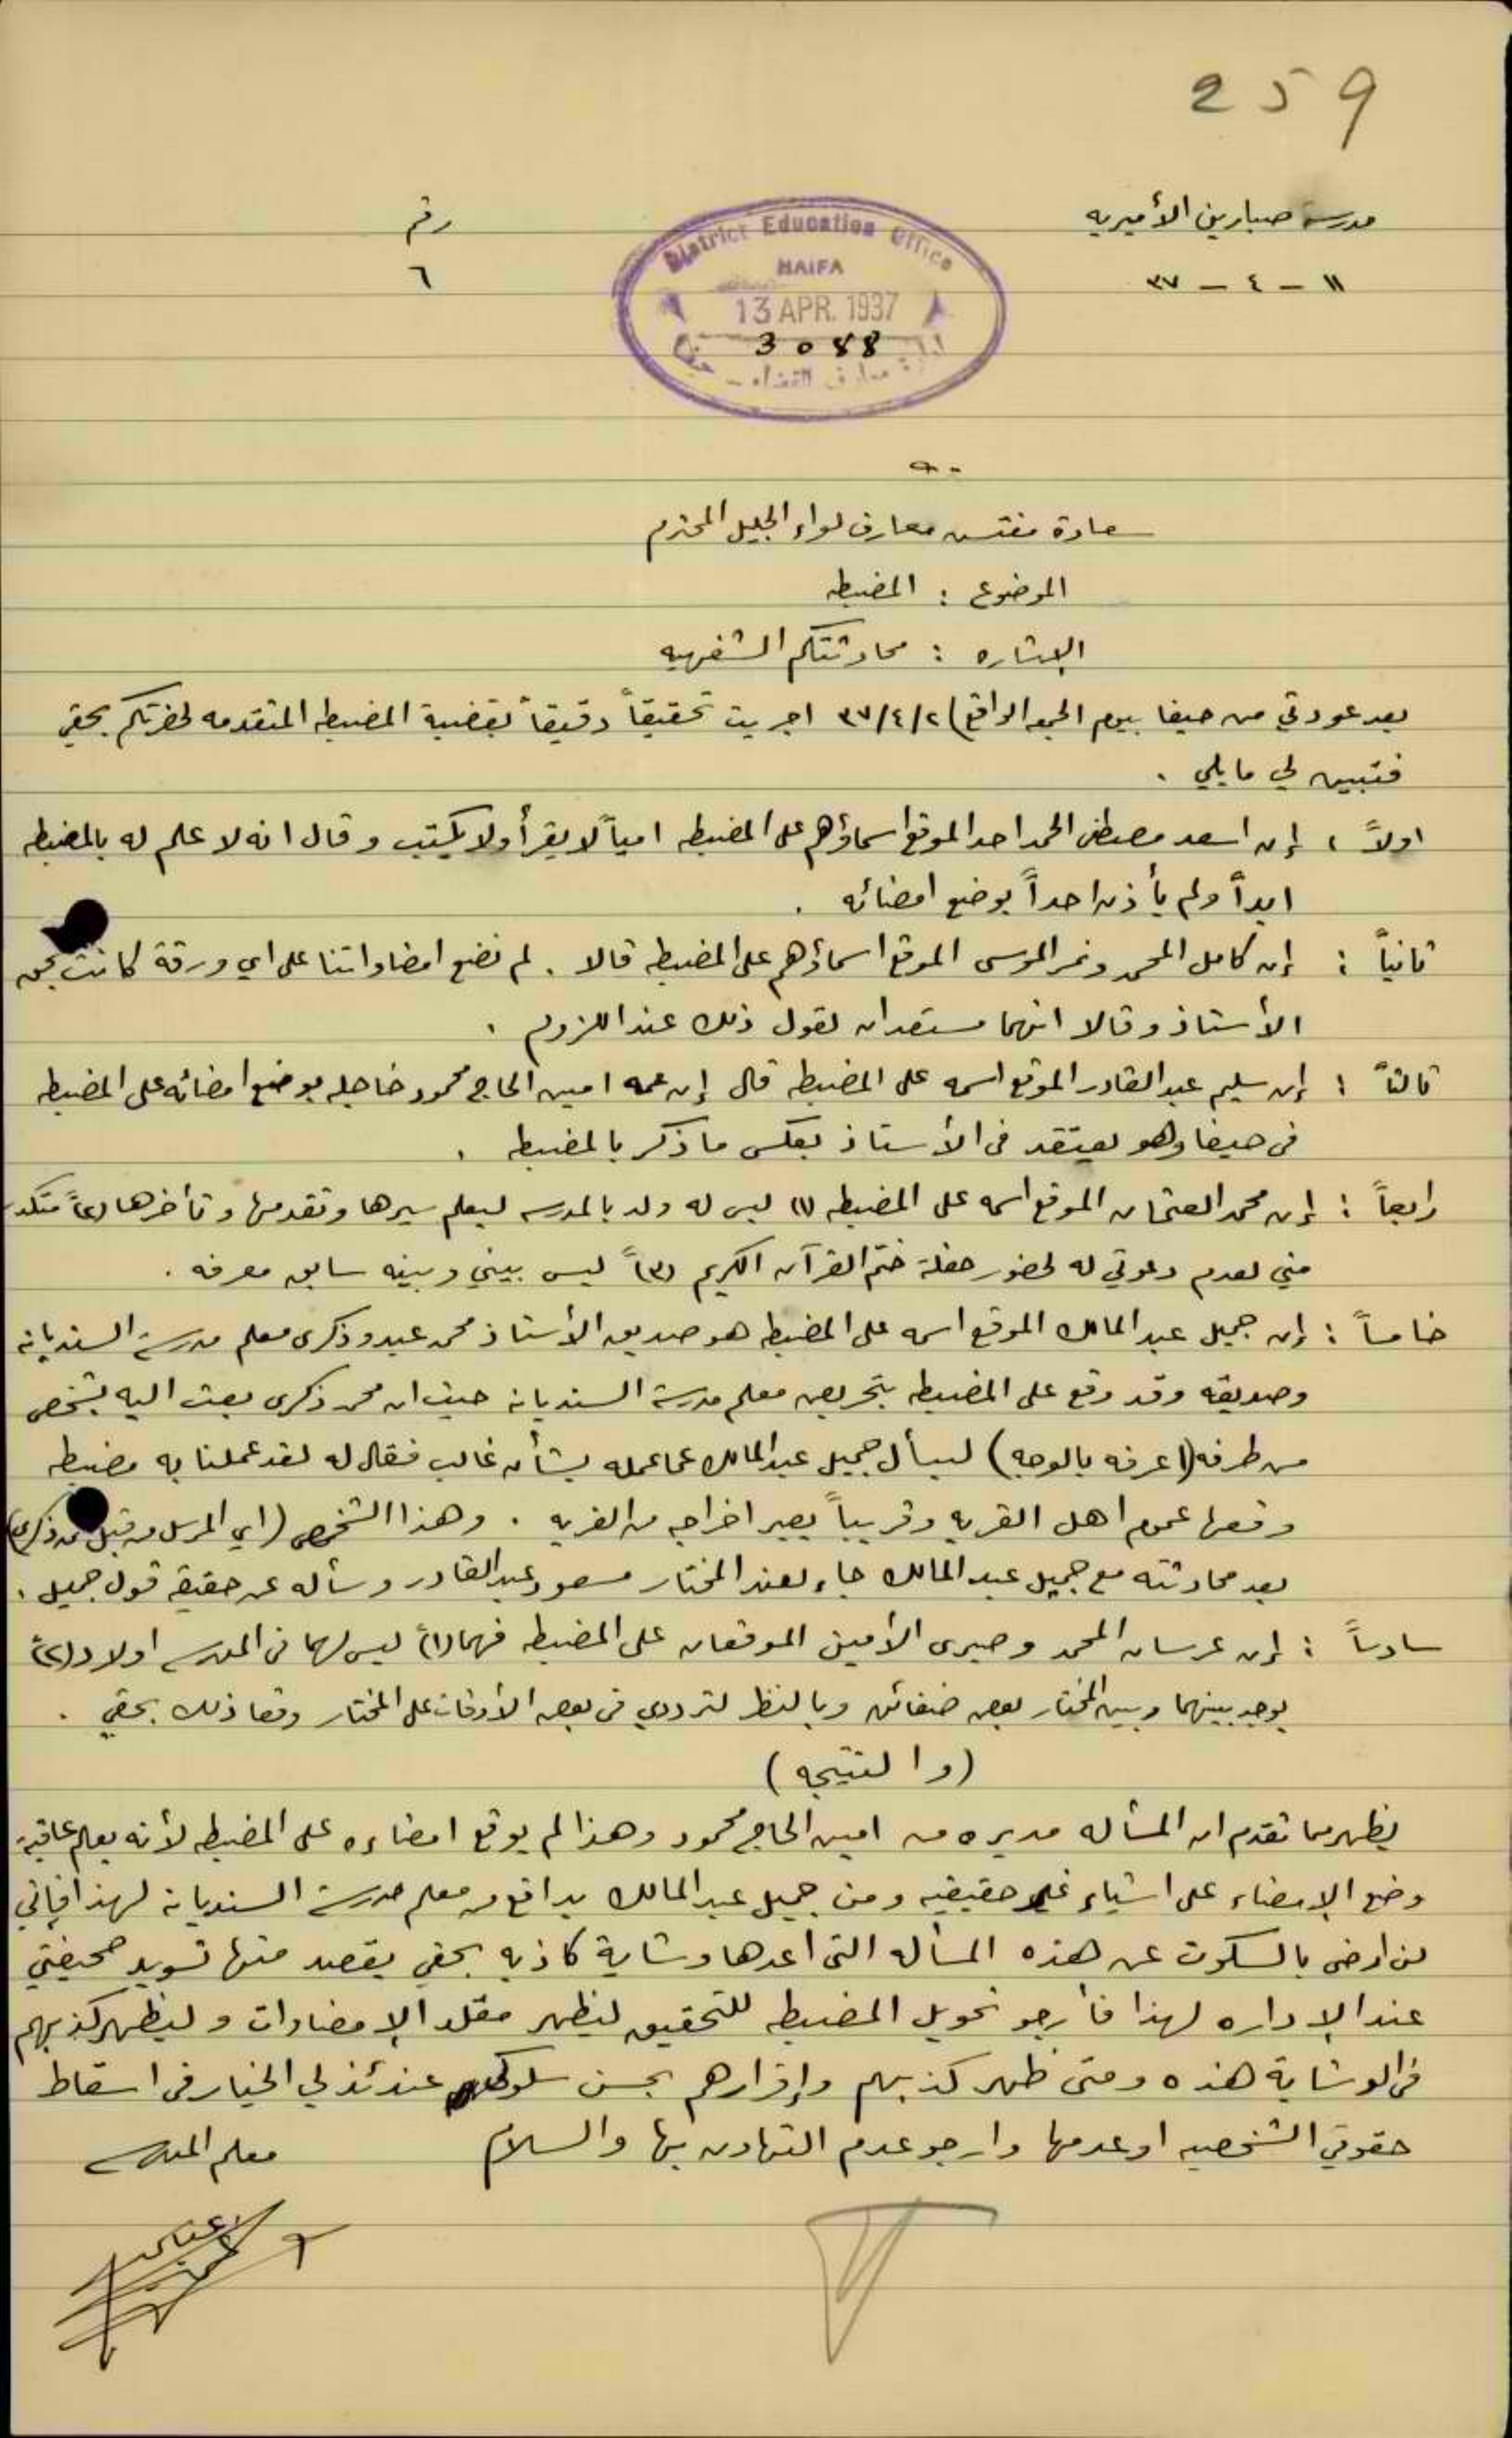 259
مدرسة صبارين الأميريه
رقم
١١ - ٤ - ٣٧
٦
District Education Office
HAIFA
13 APR. 1937
3088
ادارة معارف القضاء - حيفا
سعادة مفتش معارف لواء الجليل المحترم
الموضوع : المضبطه
الإشاره : محادثتكم الشفهيه
بعد عودتي من حيفا بيوم الجمعه الواقع ٣٧/٤/٢ اجريت تحقيقاً دقيقاً بقضية المضبطه المتقدمه لحضرتكم بحقي
فتبين لي ما يلي .
اولاً : إن اسعد مصطفى الحمد احد الموقع اسماؤهم على المضبطه امياً لا يقرأ ولا يكتب وقال انه لا علم له بالمضبطه
ابداً ولم يأذن احداً بوضع امضائه .
ثانياً : إن كامل المحمد ونمر الموسى الموقع اسماؤهم على المضبطه قالا . لم نضع امضاواتنا على اي ورقة كانت بحق
الأستاذ وقالا انهما مستعدان لقول ذلك عند اللزوم .
ثالثاً : إن سليم عبد القادر الموقع اسمه على المضبطه قال إن عمه امين الحاج محمود خاجله بوضع امضائه على المضبطه
في حيفا وهو يعتقد في الأستاذ بعكس ما ذكر بالمضبطه .
رابعاً : إن محمد العثمان الموقع اسمه على المضبطه (١) ليس له ولد بالمدرسه ليعلم سيرها وتقدمها وتأخرها (٢)ً متكدر
مني لعدم دعوتي له لحضور حفلة ختم القرآن الكريم (٣)ً ليس بيني وبينه سابق معرفه .
خامساً : إن جميل عبد المالك الموقع اسمه على المضبطه هو صديق الأستاذ محمد عيد وذكرى معلم مدرسة السنديانه
وصديقه وقد وقع على المضبطه بتحريض معلم مدرسة السنديانه حيث ان محمد ذكرى بعث اليه بشخص
من طرفه (اعرفه بالوجه) ليسأل جميل عبد المالك عما عمله بشأن غالب فقال له لقد عملنا به مضبطه
وقعها عموم اهل القريه وقريباً يصير اخراجه من القريه . وهذا الشخص (اي المرسل من قبل محمد ذكرى)
بعد محادثته مع جميل عبد المالك جاء لعند المختار مسعود عبد القادر وسأله عن حقيقة قول جميل .
سادساً : إن عرسان المحمد وصبرى الأمين الموقعان على المضبطه فهما (١)ً ليس لهما في المدرسه اولاد (٢)ً
يوجد بينهما وبين المختار بعض ضغائن وبالنظر لترددي في بعض الأوقات على المختار وقعا ذلك بحقي .
(والنتيجه)
يظهر مما تقدم ان المسأله مديره من امين الحاج محمود وهذا لم يوقع امضاءه على المضبطه لأنه يعلم عاقبة
وضع الإمضاء على اشياء غير حقيقيه ومن جميل عبد المالك بدافع من معلم مدرسة السنديانه لهذا فإني
لن ارضى بالسكوت عن هذه المسأله التي أعدها وشاية كاذبه بحقي يقصد منها تسويد صحيفتي
عند الإداره لهذا فأرجو تحويل المضبطه للتحقيق ليظهر مقلد الإمضاوات وليظهر كذبهم
في الوشاية هذه ومتى ظهر كذبهم وإقرارهم بحسن سلوكي عندئذ لي الخيار في اسقاط
حقوقي الشخصيه او عدمها وارجو عدم التهاون بها والسلام
معلم المدرسه